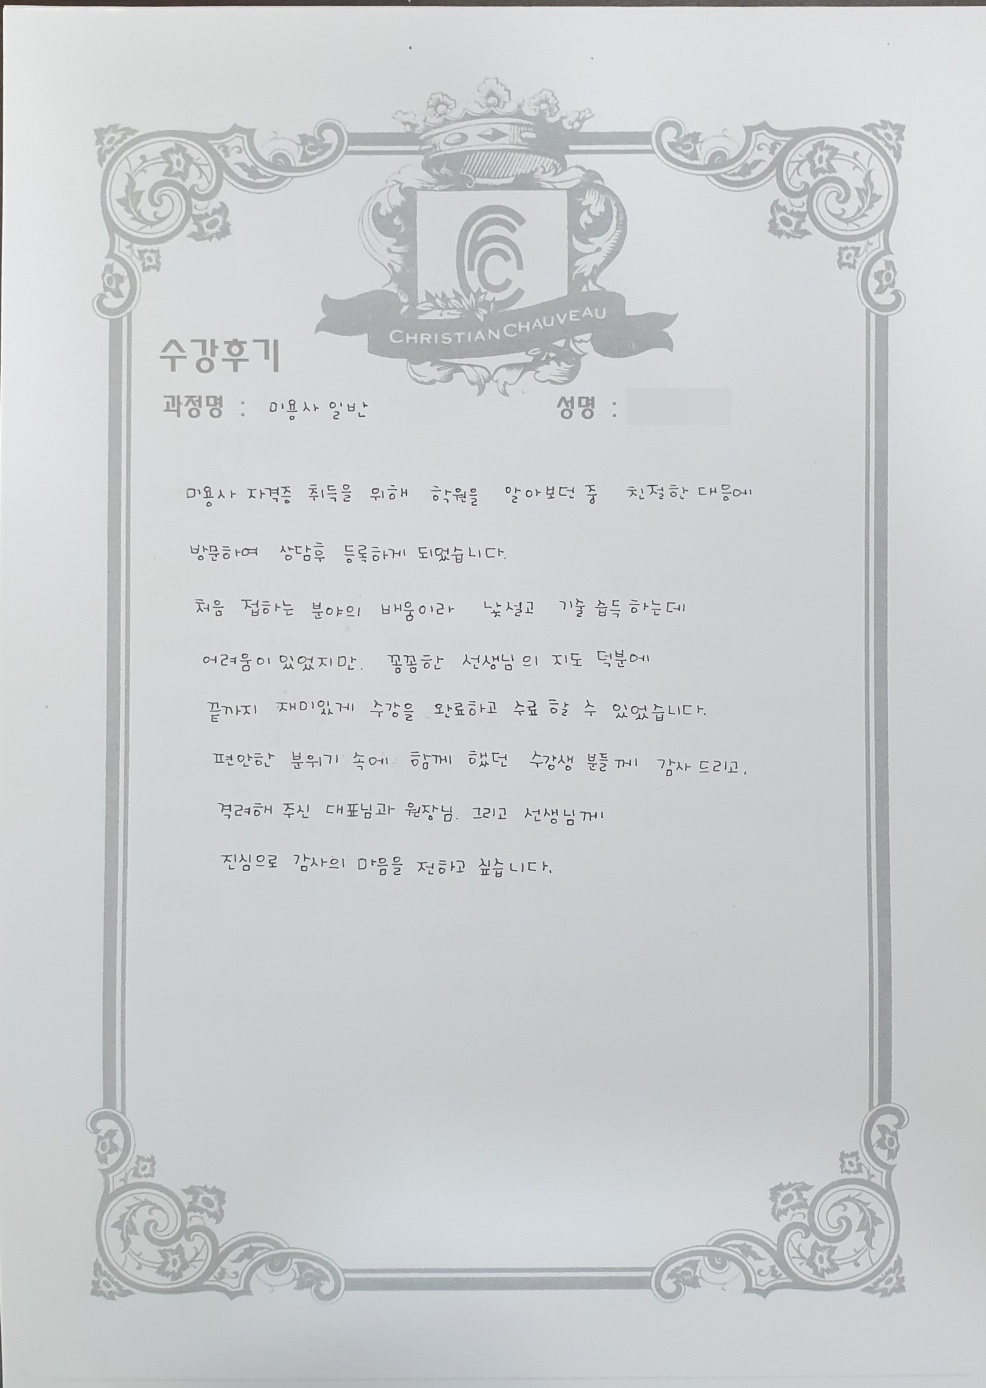 CHRISTIAN CHAUVEAU
수강후기
과정명 : 미용사 일반 성명 :
미용사 자격증 취득을 위해 학원을 알아보던 중 친절한 대응에
방문하여 상담후 등록하게 되었습니다.
처음 접하는 분야의 배움이라 낯설고 기술 습득 하는데
어려움이 있었지만. 꼼꼼한 선생님의 지도 덕분에
끝까지 재미있게 수강을 완료하고 수료 할 수 있었습니다.
편안한 분위기 속에 함께 했던 수강생 분들께 감사 드리고,
격려해 주신 대표님과 원장님. 그리고 선생님께
진심으로 감사의 마음을 전하고 싶습니다.